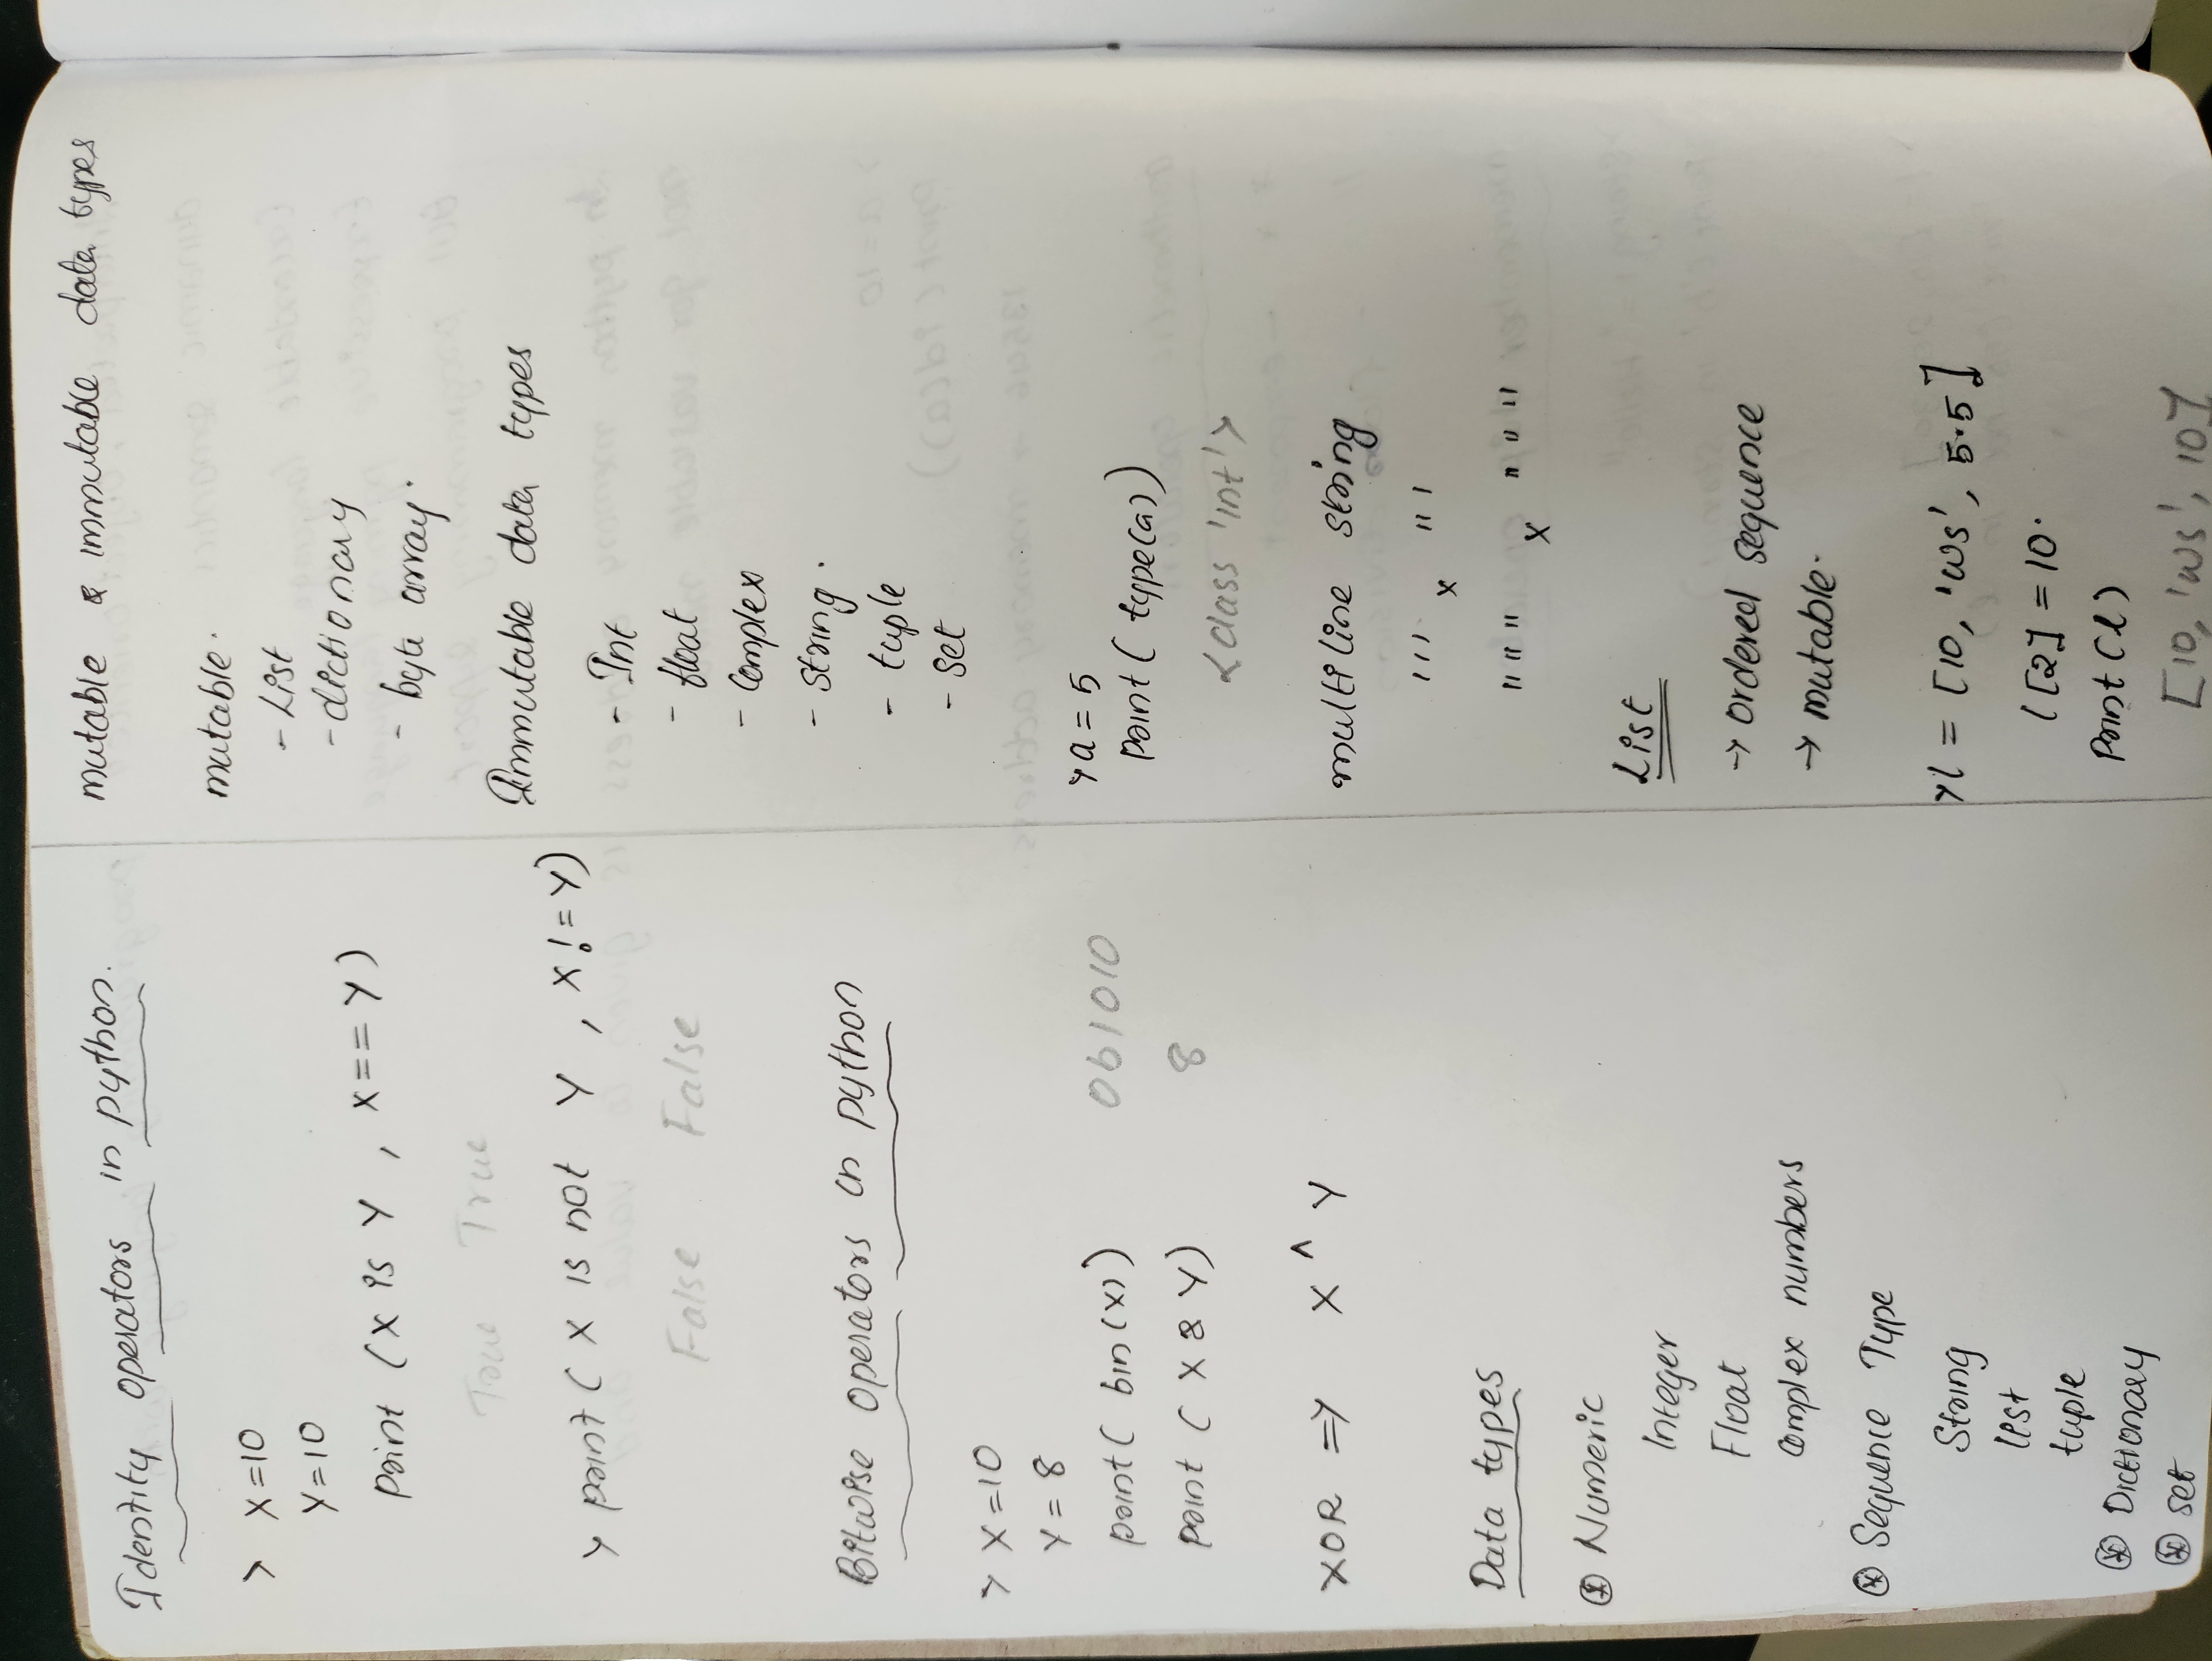 Identity operators in python.
> X=10
Y=10
print (X is Y , X==Y)
True True
> print( X is not Y , X!=Y)
False False
Bitwise operators in python
> X=10
Y = 8
print( bin(X)) 0b1010
print ( X & Y) 8
XOR => X ^ Y
Data types
* Numeric
Integer
Float
complex numbers
* Sequence Type
String
list
tuple
* Dictionary
* set
mutable & immutable data types
mutable.
- List
- dictionary
- byte array.
Immutable data types
- Int
- float
- complex
- string.
- tuple
- Set
> a = 5
print( type(a))
<class 'int'>
multiline string
''' x '''
""" x """
List
→ ordered sequence
→ mutable.
> l = [10, 'ws', 5.5]
l[2] = 10.
Print(l)
[10, 'ws', 10]